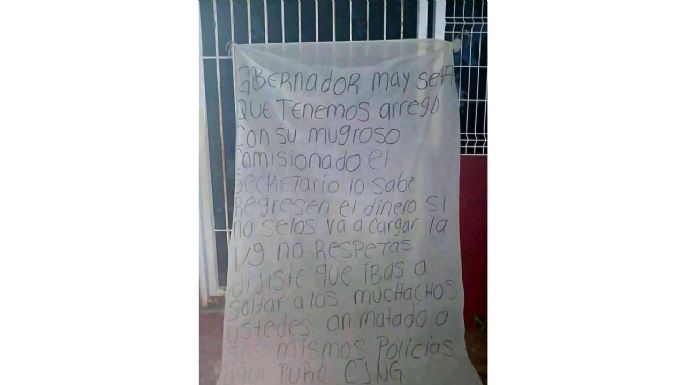 GBERNADOR MAY SEFA
QUE TENEMOS arreglo
CON su mugroso
comisionado el
SECRETARIO lo sabe
Regresen el dinero SI
no selos va a cargar la
vg no RESPETAS
dijiste que IBAS a
soltar a los MUCHACHOS
ustedes an matado a
sus mismos Policias
aqui PURO CJNG